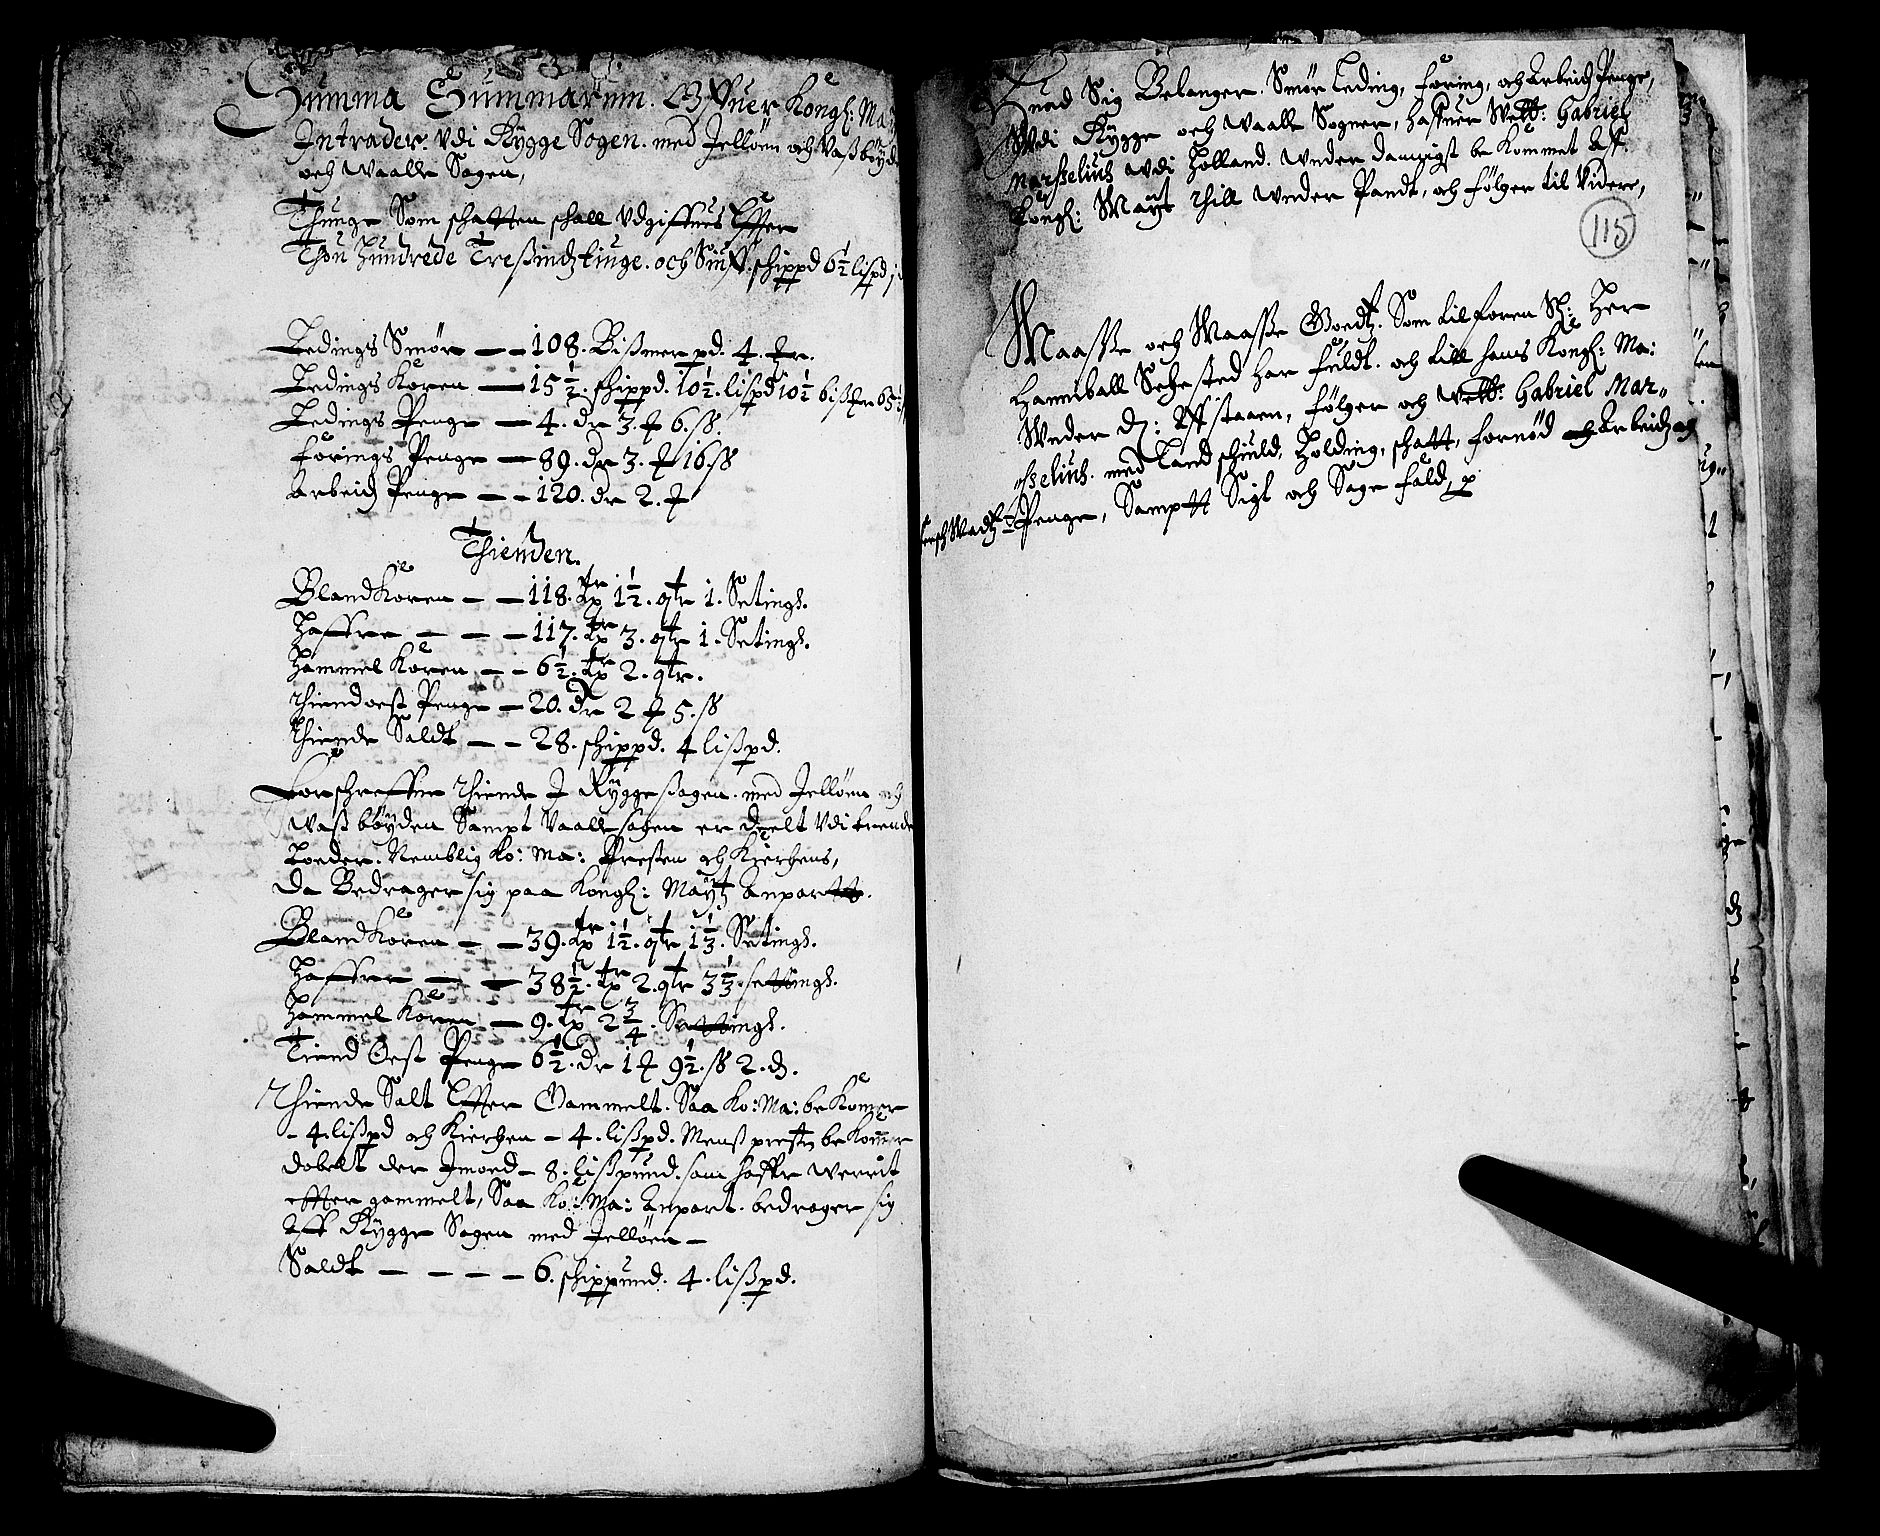 Summa Summarum. Offuer Kongl: Ma
Intrader. Vdi Rygge Sogen. med Jelløen och Vaßbøyd
och Waalle Sogen,
Thunge Som schatten schall Vdgiffues Effter
Thou Hundrede Treßindztiuge. och Siuff. schippd 6½ lißpd
Ledings Smør — — 108. Bißmer pd. 4.
Ledings Koren — 15½. schippd. 10½. lißpd 10½ biß
Ledings Penge — 4. dr 3. 6. ß.
Førings Penge — 89. dr 3. 16. ß
Arbeidz Penge — — 120. dr 2.
Thienden.
Blandkoren — — 118. tr 1½. qtr 1. Setingh.
Haffre — — — 117. tr 3. qtr 1. Setingh.
Hammel Koren — — 6½. tr 2. qtr.
Thiendost Penge — 20. dr 2 5. ß
Thiende Saldt — — 28. schippd. 4 lißpd.
Forschreffne Thiende J Rygge sogen. med Jelløen och
Waß bøyden Sampt Vaalle sogen er deelt Vdi trende
Loeder. Nemblig Ko: Ma: Presten och Kierchens,
Da Bedrager sig paa Kongl: Maytz Anpartt.
Blandkoren — — 39. tr 1½. qtr 1⅓. Setingh.
Haffre — — 38½. tr 2. qtr 3⅓. settingh.
Hammel Koren — 9. tr 2¾. Settingh.
Tiend Oest Penge 6½. dr 1 9½. ß 2. d.
Thiende Salt Effter Gammelt. Saa Ko: Ma: bekomer
- 4. lißpd och Kierchen – 4. lißpd. Menß presten bekommer
dobelt der Jmoed – 8. lißpund. som haffr werrit
effter gammelt, Saa Ko: Ma: Anpart. bedrager sig
Aff Rygge Sogen med Jelløen —
Saldt — — — — 6. schippund. 4. lißpd.
Huad Sig Belanger. Smør Leding, føring, och Arbeidz Penge,
Wdi Rygge och Waalle Sogner, haffuer Welb: Gabriel
Marßelius Wdi Holland. Wnder dannigst bekommet Aff.
Kongl: Maytt Thill Wnder Pandt, och følger til Videre,
115
Maaße och Maaße Goedtz. Som tilforen S: Her
Hanniball Sehested har fuldt. och till hans Kongl: Ma:
Wnder d: Affstaaen, følger och Welb: Gabriel Mar-
ßelius. med Land schuld, Holding, schatt, fornød Arbeidz och
Penge, Samptt Sigt och Sage fald,